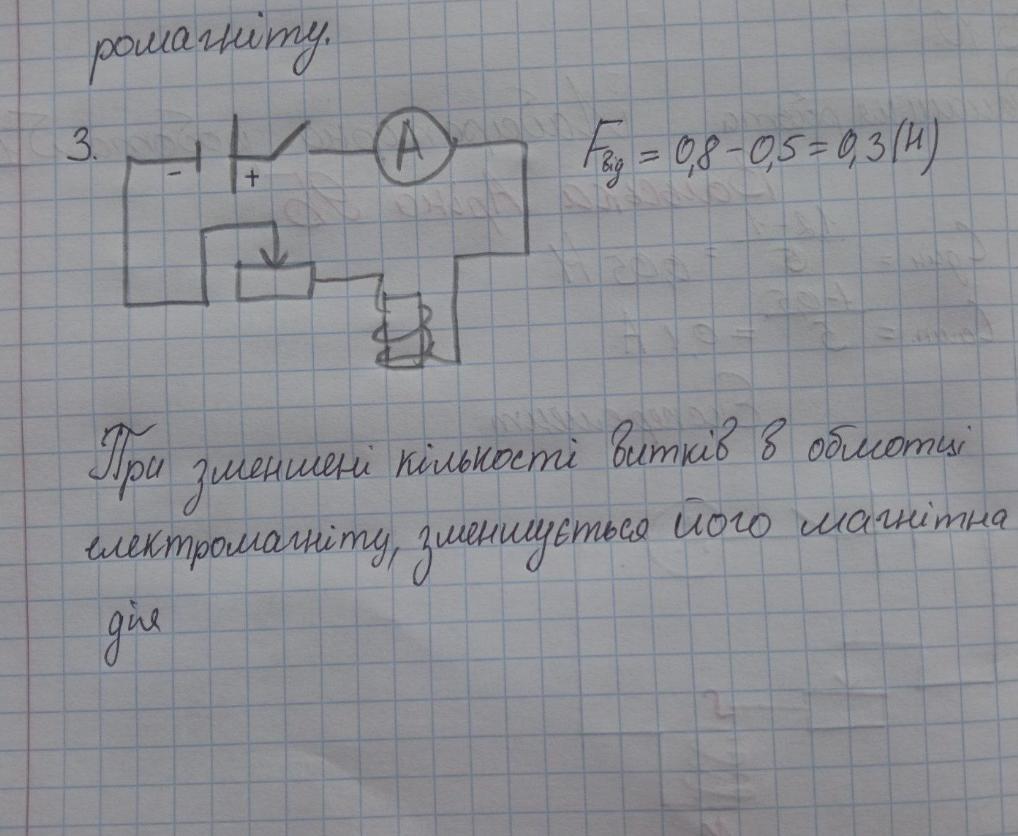 ромагніту.
3.
A
- +
Fвід = 0,8 - 0,5 = 0,3 (Н)
При зменшені кількості витків в обмотці
електромагніту, зменшується його магнітна
дія